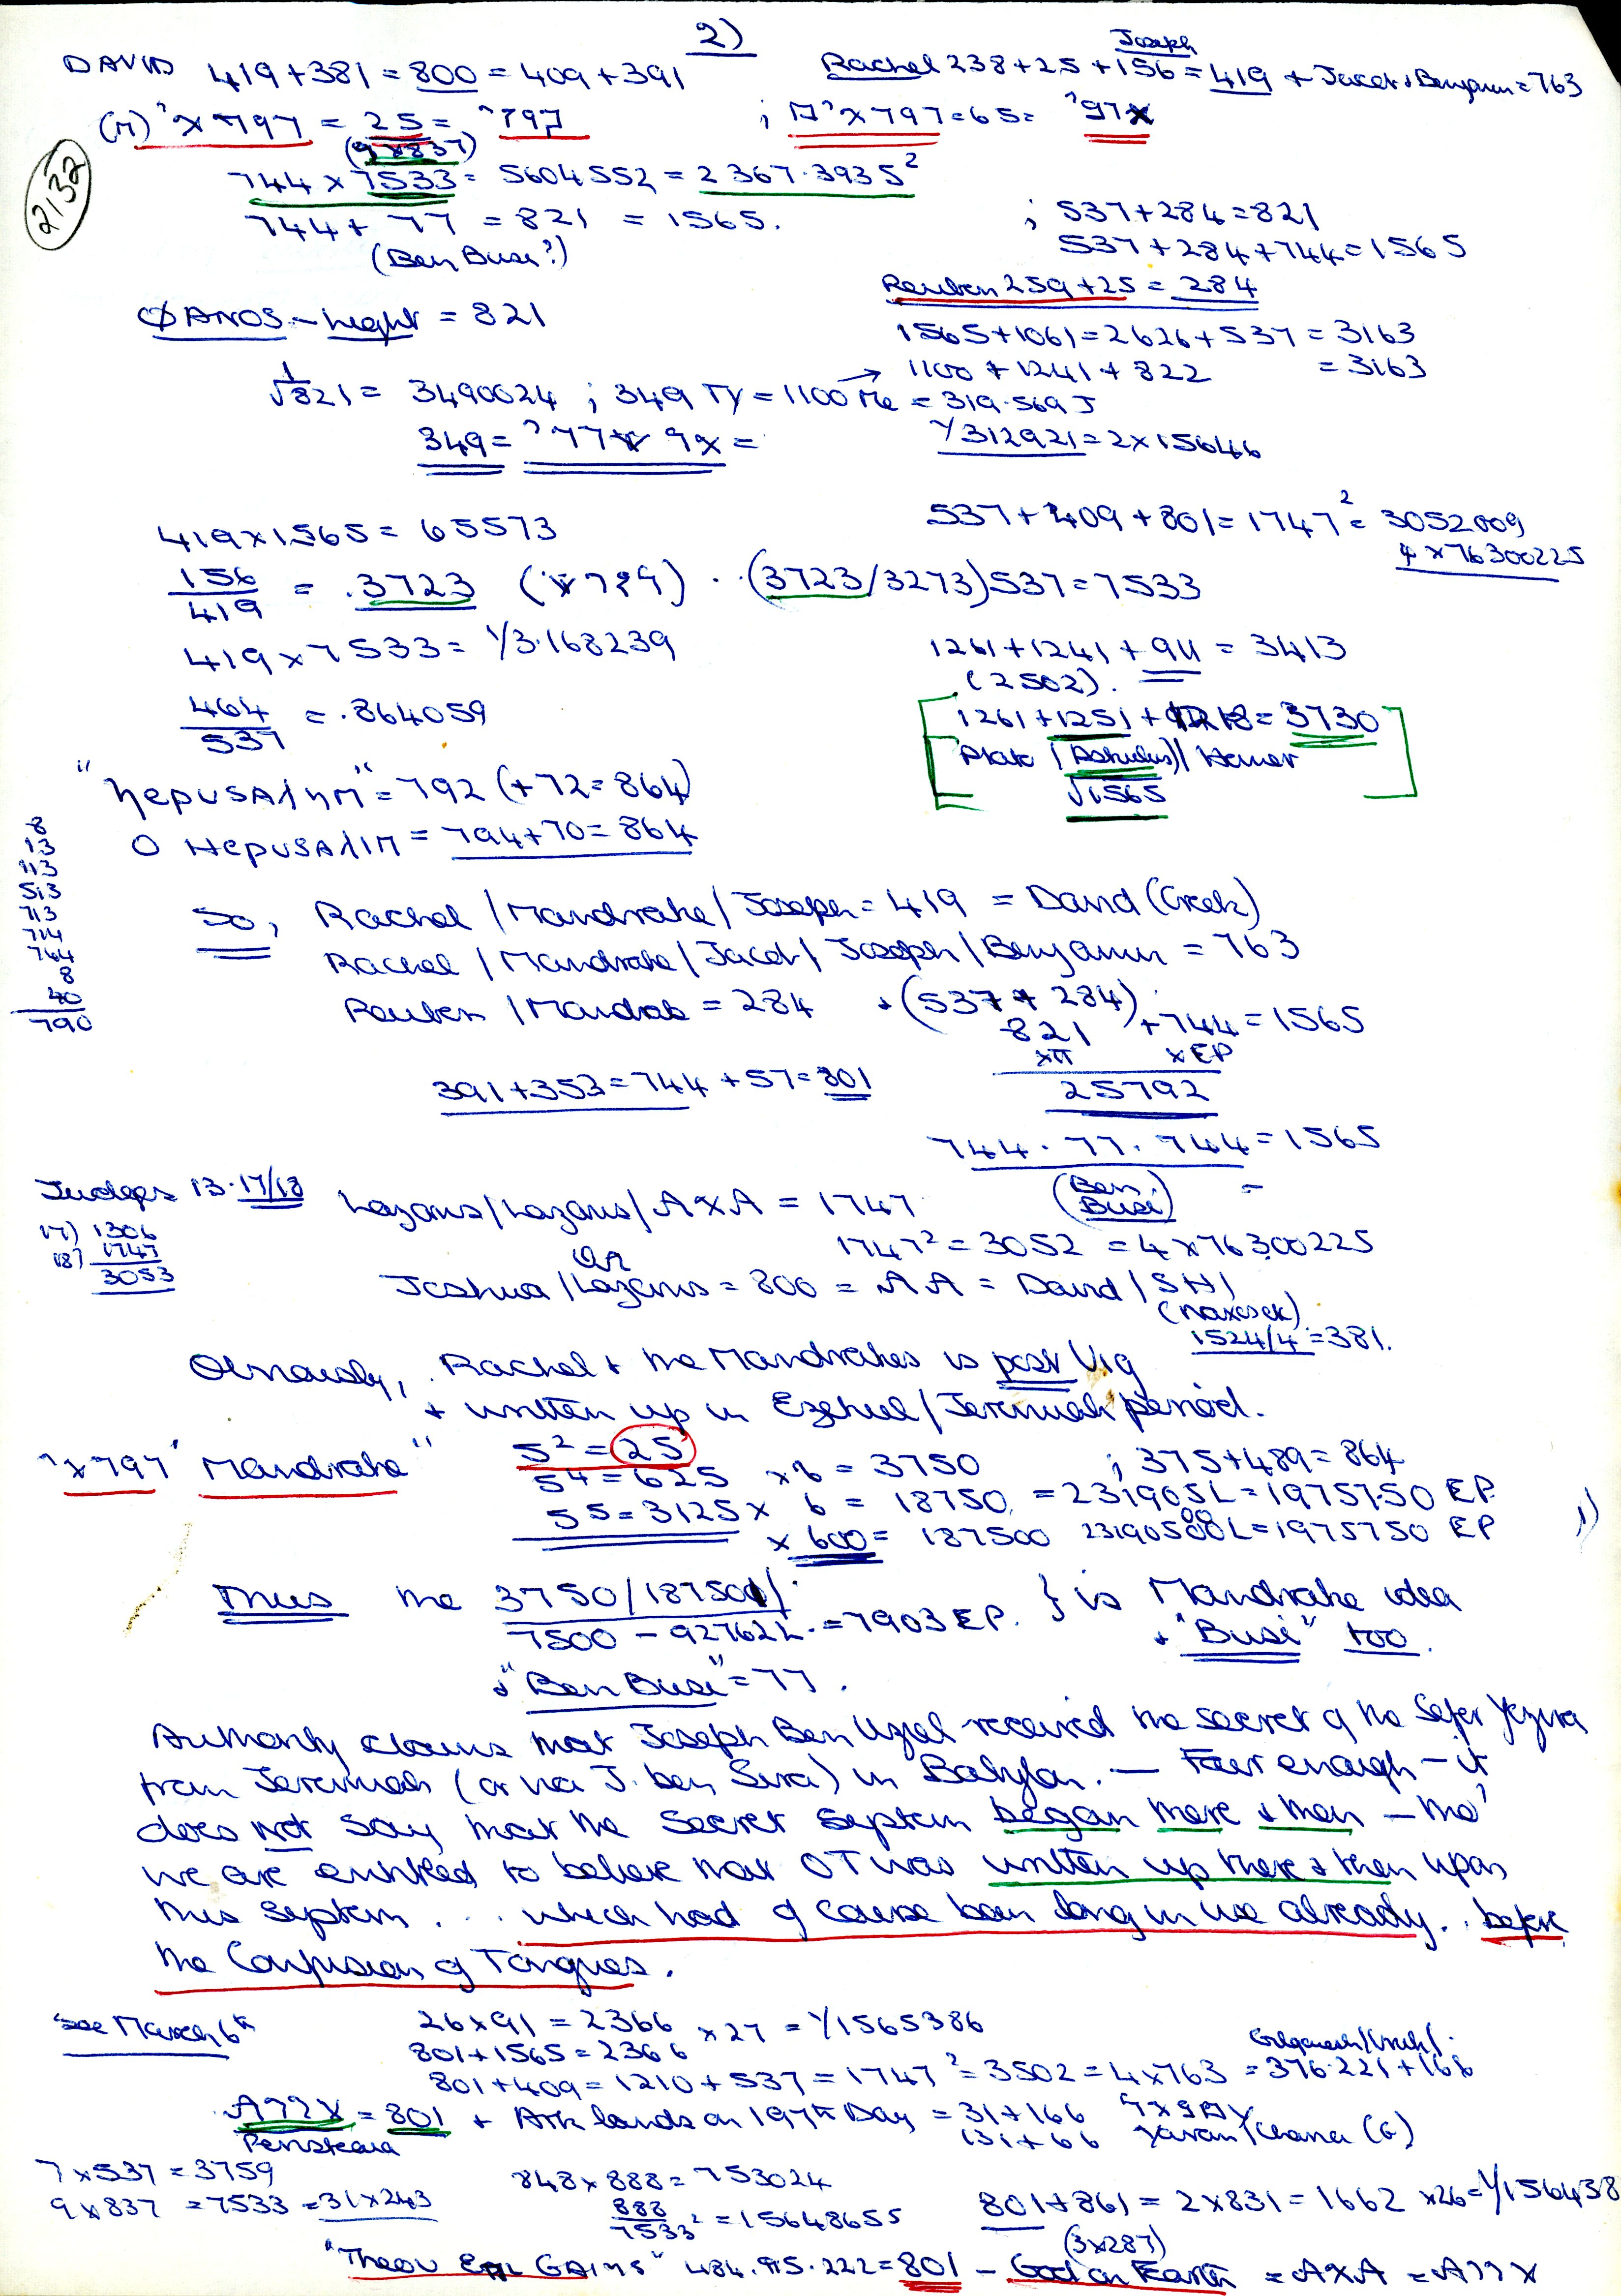 2)
DAVID 419+381=800=409+391
Joseph
Rachel 238+25+156=419 + Jacob + Benjamin=763
2132
744 x 7533 = 5604552 = 2367.3935²
(9x837)
744 + 77 = 821 = 1565.
(Ben Busi?)
; 537+284=821
537+284+744=1565
Reuben 259+25 = 284
ΦANOS - light = 821
1565+1061=2626+537=3163
1100+1241+822 =3163
√821 = 3490024 ; 349 TY = 1100 Me = 319.569 J
349 =
1/312921=2x15646
419x1565=65573
537+409+801=1747²=3052009
4x76300225
156/419 = .3723
(3723/3273)537=7533
419x7533=1/3.168239
1261+1241+911=3413
(2502).
464/537 = .864059
1261+1251+1218=3730
Plato / / Homer
√1565
=792 (+72=864)
=794+70=864
8
13
113
513
713
714
744
8
40
790
So, Rachel/Mandrake/Joseph=419=David (Greek)
Rachel/Mandrake/Jacob/Joseph/Benjamin=763
Reuben/Mandrake=284 + (537+284)
821 +744=1565
xπ xEP
25792
391+353=744+57=801
744.77.744=1565
(Ben Busi)
Judges 13.17/18
17) 1306
18) 1747
3053
Lazarus/Lazarus/AXA=1747
or
1747²=3052=4x76300225
Joshua/Lazarus=800=AA=David/SHI
1524/4=381.
Obviously, Rachel + the Mandrakes is post Ug
+ written up in Ezekiel/Jeremiah period.
"Mandrake"
5²=25
5⁴=625 x6=3750 ; 375+489=864
5⁵=3125x6=18750 =231905L=19757.50 EP.
x600=187500 23190500L=1975750 EP
Thus the 3750/187500/
7500-92762L.=7903EP. } is Mandrake idea
+ "Busi" too.
+ "Ben Busi"=77.
Authority claims that Joseph Ben Uziel received the secret of the Sefer Yezira
from Jeremiah (or via J. ben Sira) in Babylon. — Fair enough - it
does not say that the secret system began there + then - tho'
we are entitled to believe that OT was written up there + then upon
this system... which had of course been long in use already.. before
the Confusion of Tongues.
See March 6th
26x91=2366 x27=1/1565386
801+1565=2366
801+409=1210+537=1747²=3502=4x763=376.221+168
Gilgamesh/Uruk/
=801 + Ark lands on 197th Day=31+166
131+66
Javan/Chava (G)
Peristeara
7x537=3759
9x837=7533=31x243
848x888=753024
888/7533²=15648655
801+861=2x831=1662 x26=1/156438
(3x287)
"Theou Epi Gains" 484.95.222=801 - God on Earth = AXA =